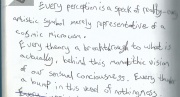 Every perception is a speck of reality, an
artistic symbol merely representative of a
cosmic microcosm.
Every theory a breakthrough to what is
actually, behind this monolithic vision
of our sensual consciousness. Every theory
a bump in this quest of nothingness.